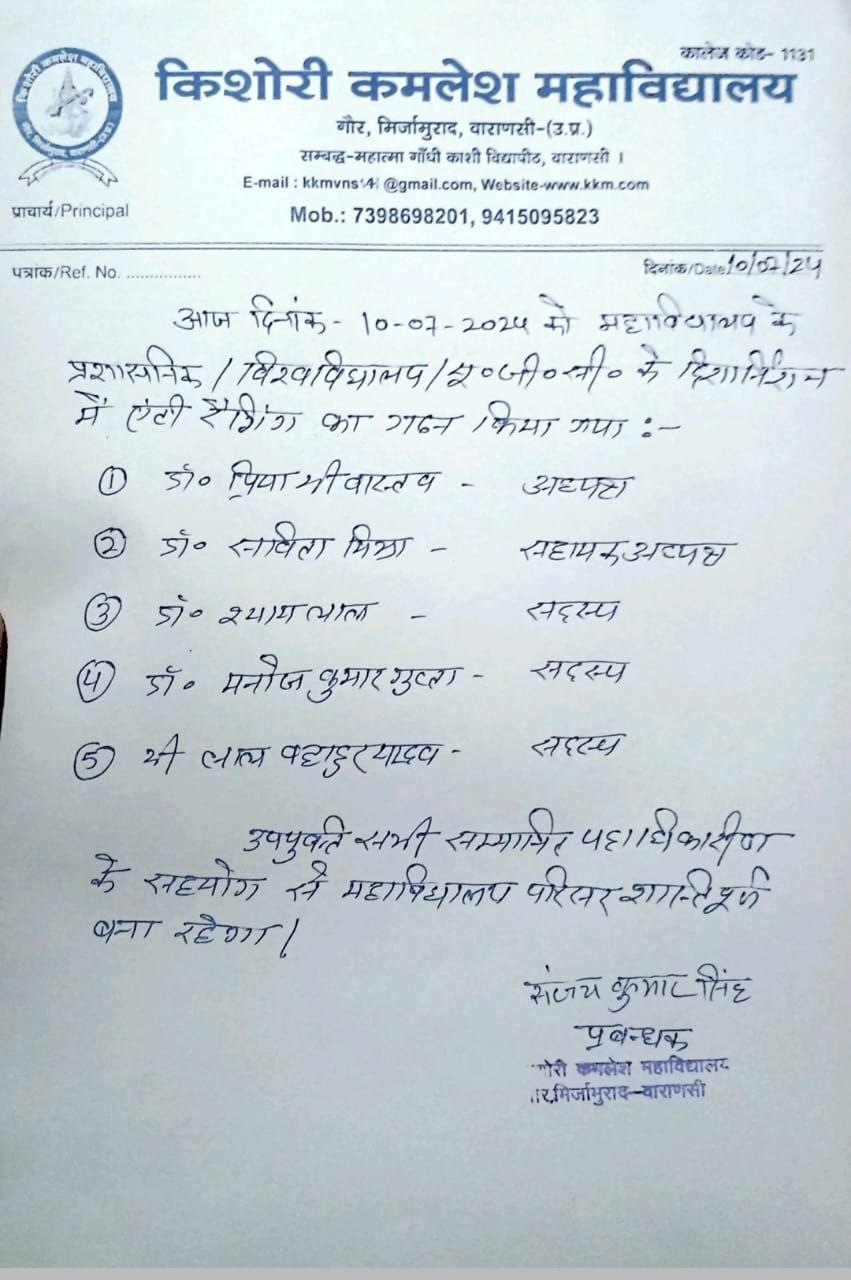 कालेज कोड- 1131
किशोरी कमलेश महाविद्यालय
गौर, मिर्जामुराद, वाराणसी-(उ.प्र.)
सम्बद्ध-महात्मा गाँधी काशी विद्यापीठ, वाराणसी ।
E-mail : kkmvns141@gmail.com, Website-www.kkm.com
प्राचार्य/Principal
Mob.: 7398698201, 9415095823
पत्रांक/Ref. No. ................
दिनांक/Date 10/07/24
आज दिनांक- 10-07-2024 को महाविद्यालय के
प्रशासनिक / विश्वविद्यालय / यू०जी०सी० के दिशानिर्देशन
में एंटी रैगिंग का गठन किया गया :-
① डॉ० प्रिया श्रीवास्तव - अध्यक्ष
② डॉ० सविता मिश्रा - सहायक अध्यक्ष
③ डॉ० श्यामलाल - सदस्य
④ डॉ० मनोज कुमार गुप्ता - सदस्य
⑤ श्री लाल बहादुर यादव - सदस्य
उपर्युक्त सभी सम्मानित पदाधिकारीगण
के सहयोग से महाविद्यालय परिसर शान्तिपूर्ण
बना रहेगा।
संजय कुमार सिंह
प्रबन्धक
कमलेश महाविद्यालय
मिर्जामुराद-वाराणसी